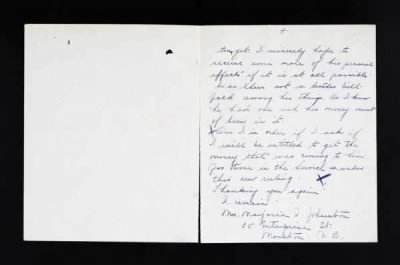 to get. I sincerely hope to
receive some more of his personal
effects if it is at all possible
was there not a leather bill-
fold among his things. As I know
he had one with his money must
of been in it.
Am I in order if I ask if
I will be entitled to get the
money that was coming to him
for time in the Service under
this new ruling.
Thanking you again
I remain
Mrs. Marjorie I. Johnston
Enterprise St.
Moncton N.B.